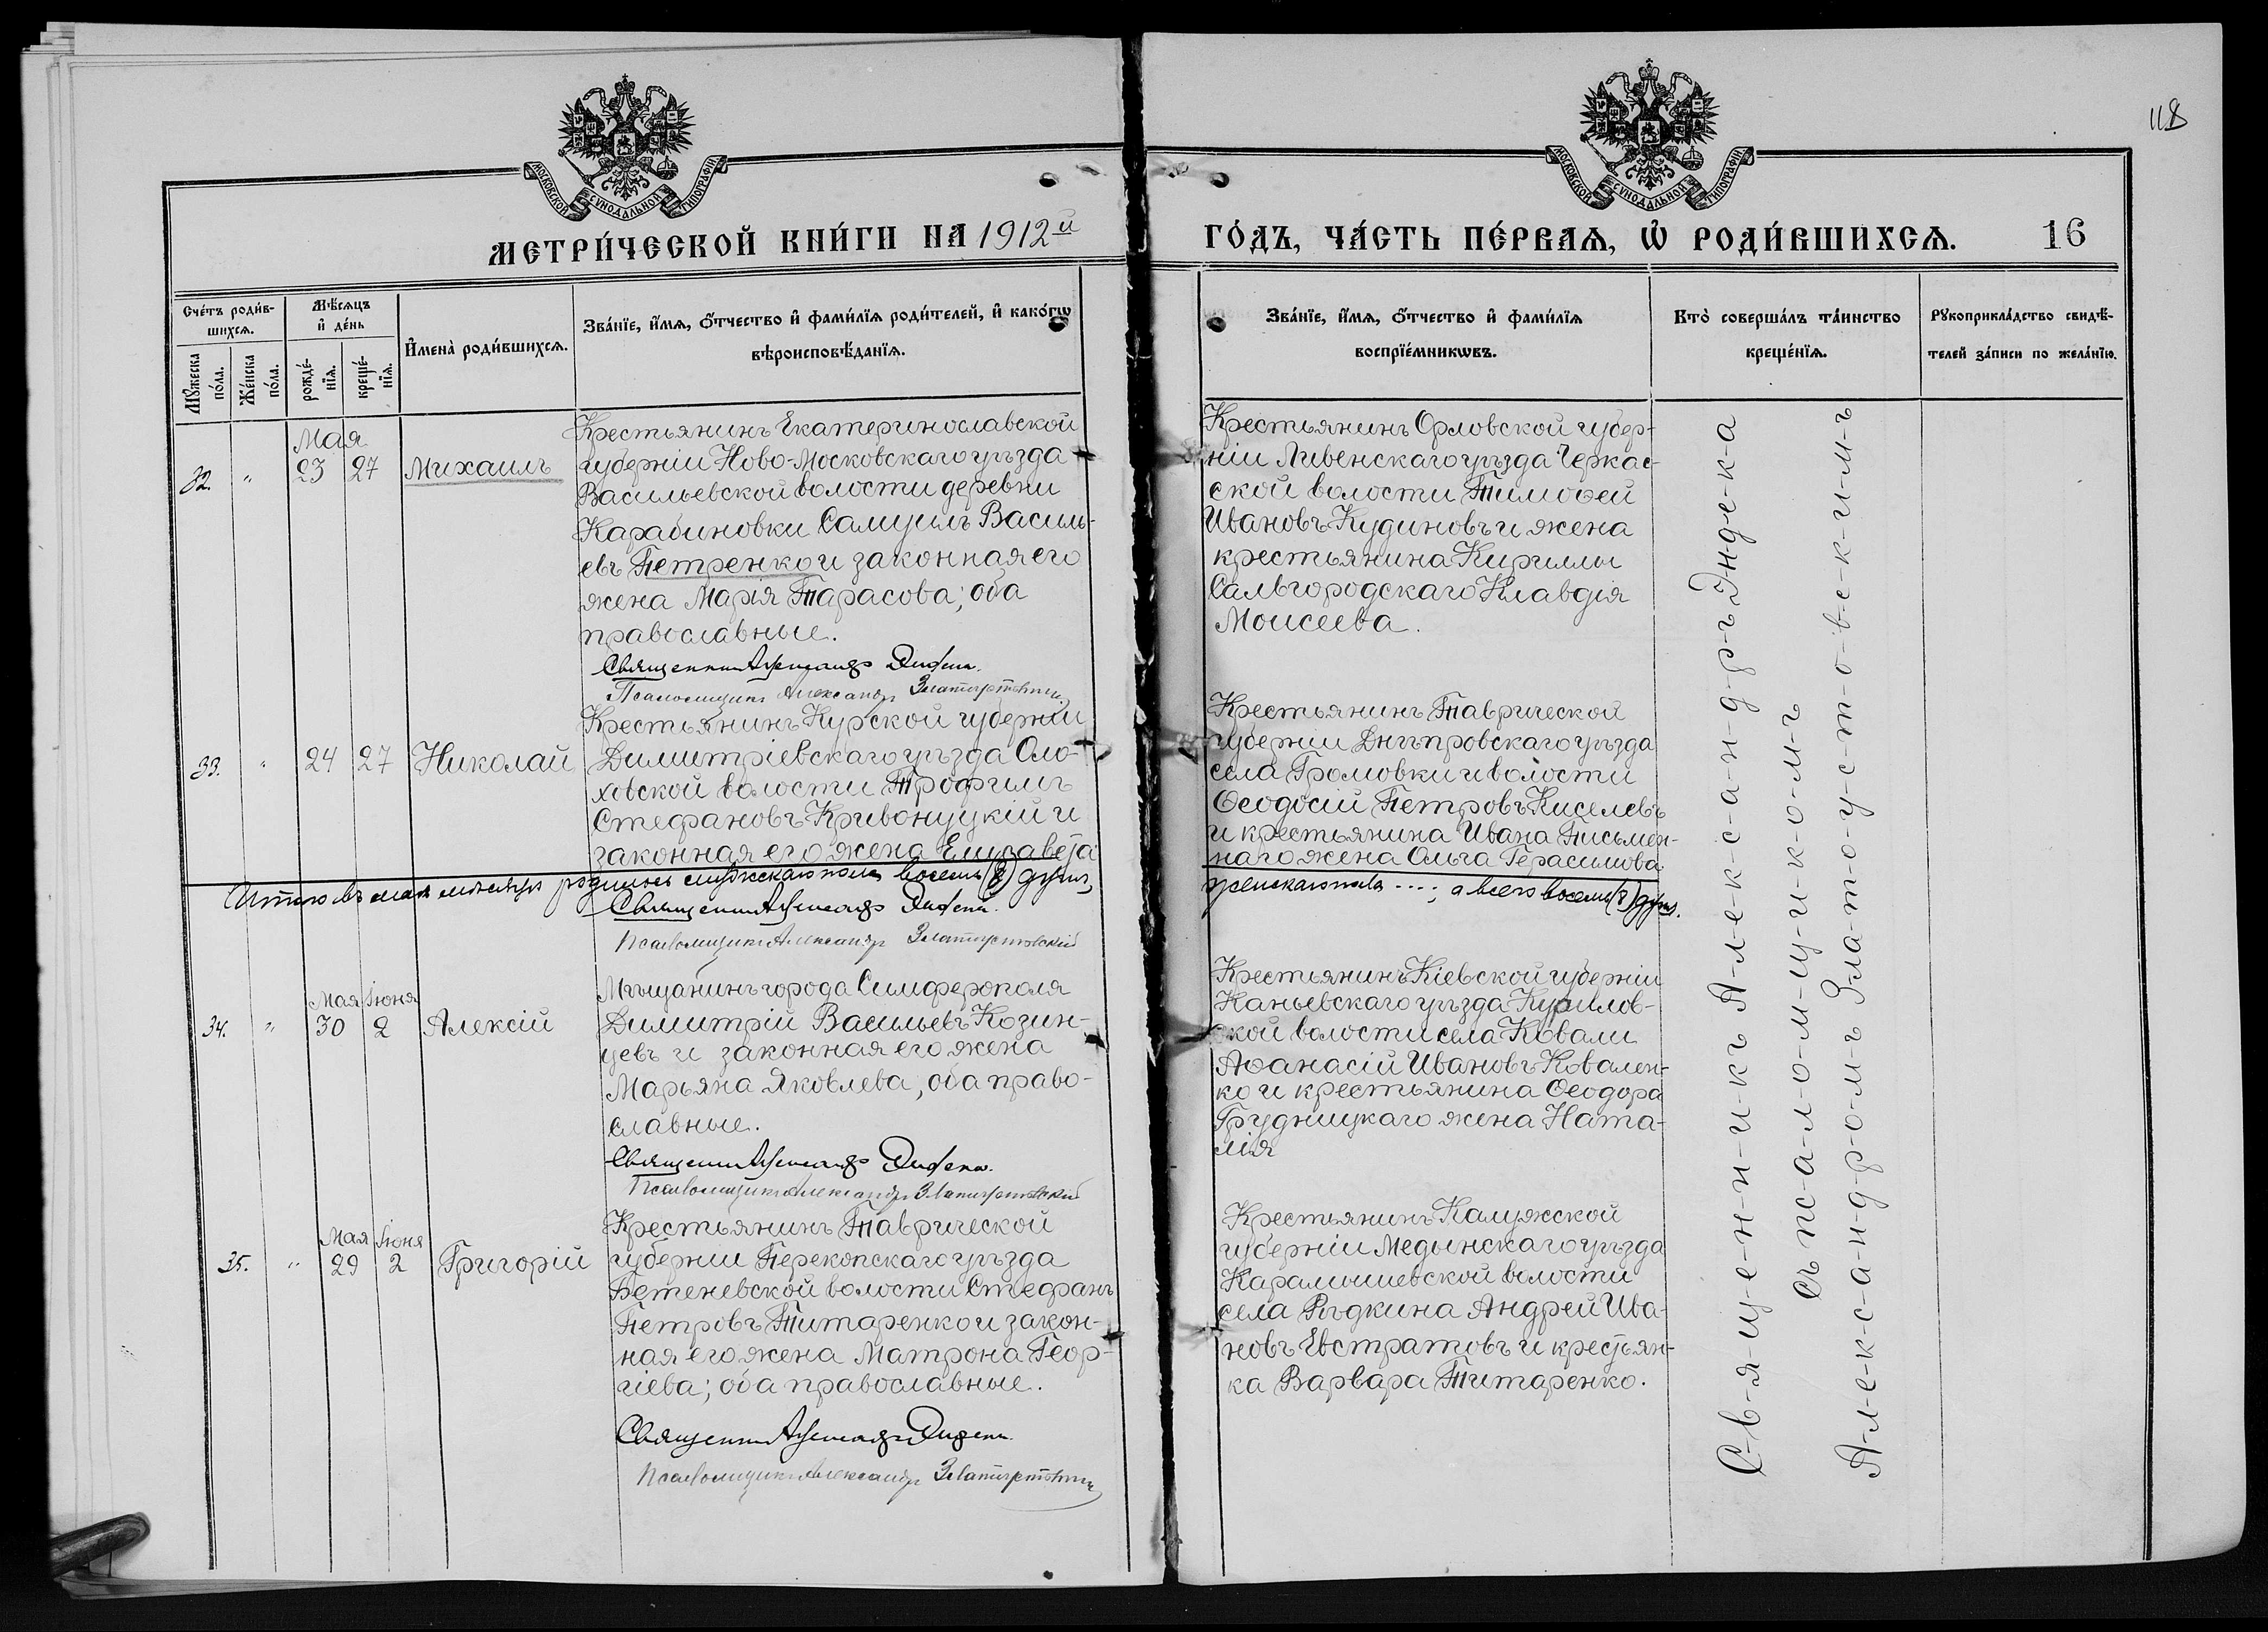 118
МОСКОВСКОЙ СУНОДАЛЬНОЙ ТИПОГРАФІИ
МОСКОВСКОЙ СУНОДАЛЬНОЙ ТИПОГРАФІИ
МЕТРИ́ЧЕСКОЙ КНИ́ГИ НА 1912й
ГО́ДЪ, ЧА́СТЬ ПЕ́РВАѦ, Ѡ҆ РОДИ́ВШИХСѦ. 16
Сче́тъ роди́в-
шихсѧ.
Мꙋ́жеска
по́ла.
Же́нска
по́ла.
Мѣ́сѧцъ
и҆ де́нь
рожде́-
нїѧ.
креще́-
нїѧ.
И҆мена̀ роди́вшихсѧ.
Зва́нїе, и҆́мѧ, ѻ҆́тчество и҆ фами́лїѧ роди́телей, и҆ како́гѡ
вѣроисповѣ́данїѧ.
Зва́нїе, и҆́мѧ, ѻ҆́тчество и҆ фами́лїѧ
воспрїе́мникѡвъ.
Кто̀ соверша́лъ та́инство
креще́нїѧ.
Рꙋкоприкла́дство свидѣ́-
телей за́писи по жела́нїю.
Мая
32. " 23 27 Михаилъ
Крестьянинъ Екатеринославской
губерніи Ново-Московскаго уѣзда
Васильевской волости деревни
Карабиновки Самуилъ Василь-
евъ Петренко и законная его
жена Марія Тарасова; оба
православные.
Священникъ Александръ Эндека.
Псаломщикъ Александръ Златоустовскій
Крестьянинъ Орловской губер-
ніи Ливенскаго уѣзда Черкас-
ской волости Тимоѳей
Ивановъ Кудиновъ и жена
крестьянина Кириллы
Сальгородскаго Клавдія
Моисеева.
33. " 24 27 Николай
Крестьянинъ Курской губерніи
Димитріевскаго уѣзда Оло-
ховской волости Трофимъ
Стефановъ Кривонуцкій и
законная его жена Елизавета
Крестьянинъ Таврической
губерніи Днѣпровскаго уѣзда
села Громовки и волости
Ѳеодосій Петровъ Киселевъ
и крестьянина Ивана Письмен-
наго жена Ольга Герасимова
Итого въ маѣ мѣсяцѣ родилось мужескаго пола восемь (8) душъ,
женскаго пола ....; а всего восемь (8) душъ.
Священникъ Александръ Эндека.
Псаломщикъ Александръ Златоустовскій
Мая Іюня
34. " 30 2 Алексій
Мѣщанинъ города Симферополя
Димитрій Васильевъ Козин-
цевъ и законная его жена
Марьяна Яковлева, оба право-
славные.
Священникъ Александръ Эндека.
Псаломщикъ Александръ Златоустовскій
Крестьянинъ Кіевской губерніи
Каньевскаго уѣзда Курилов-
ской волости села Ковали
Аѳанасій Ивановъ Ковален-
ко и крестьянина Ѳеодора
Грудницкаго жена Ната-
лія
Мая Іюня
35. " 29 2 Григорій
Крестьянинъ Таврической
губерніи Перекопскаго уѣзда
Бетеневской волости Стефанъ
Петровъ Титаренко и закон-
ная его жена Матрона Геор-
гіева; оба православные.
Священникъ Александръ Эндека.
Псаломщикъ Александръ Златоустовскій
Крестьянинъ Калужской
губерніи Медынскаго уѣзда
Карамышевской волости
села Рѣдкина Андрей Ива-
новъ Евстратовъ и крестьян-
ка Варвара Титаренко.
С-в-я-щ-е-н-н-и-к-ъ А-л-е-к-с-а-н-д-р-ъ Э-н-д-е-к-а
съ п-с-а-л-о-м-щ-и-к-о-м-ъ
А-л-е-к-с-а-н-д-р-о-м-ъ З-л-а-т-о-у-с-т-о-в-с-к-и-м-ъ